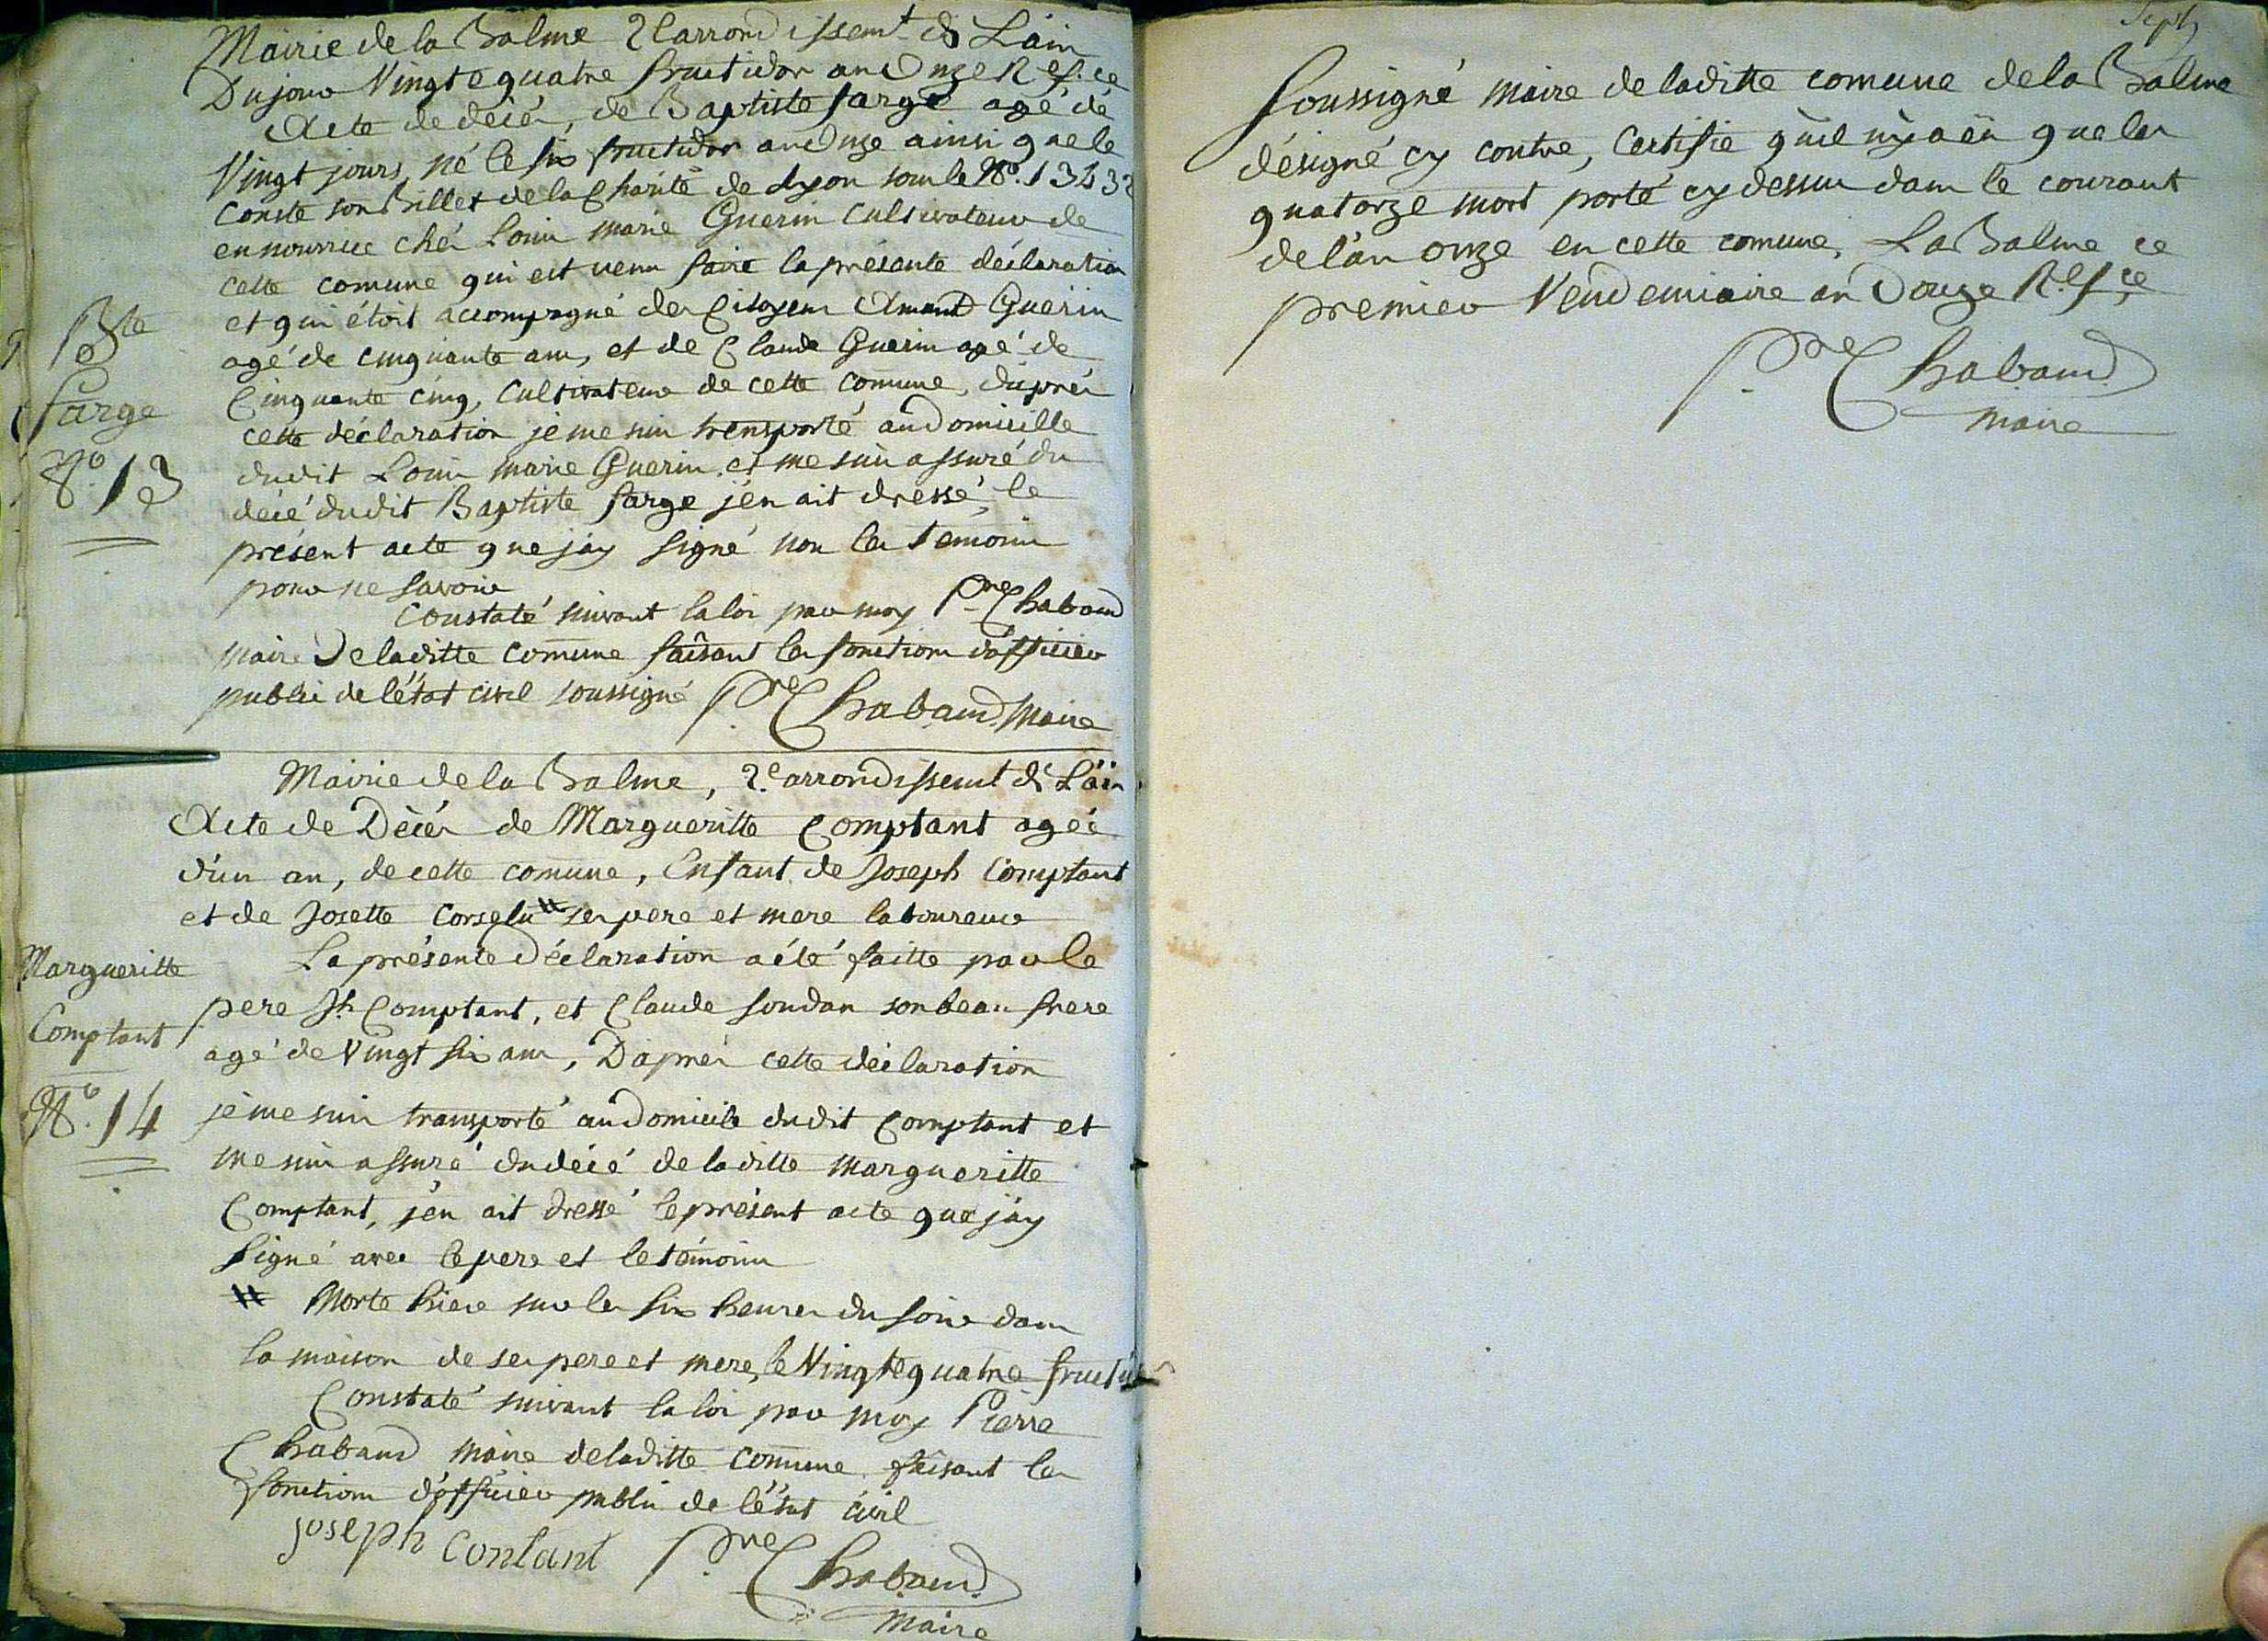 Mairie de la Balme 2e arrondissemt de L'ain
Du jour Vingtequatre fructidor an Onze R.e f.ce
Acte de décés, de Baptiste farge agé de
Vingt jours, né le six fructidor an Onze ainsi que le
Conste son Billet de la Charité de Lyon sous le No.
en nourrice chés Louis marie Guerin Cultivateur de
cette comune qui est venu faire la présente déclaration
et qui étoit accompagné des Citoyens Amand Guerin
agé de cinquante ans, et de Claude Guerin agé de
Cinquante cinq, Cultivateurs de cette comune, d'après
cette déclaration je me suis transporté au Domicille
dudit Louis marie Guerin et me suis assuré du
décé dudit Baptiste farge j'en ait dressé le
présent acte que j'ay signé non les temoins
pour ne savoir
Bte
farge
No. 13
Constaté suivant la loi par moy Pre Chabaud
maire De laditte comune faisant les fonctions d'officier
public de l'état civil soussigné Pre Chabaud Maire
Mairie de la Balme, 2.e arrondissemt de L'ain
Acte de Décés de Margueritte Comptant agée
d'un an, de cette comune, Enfant de Joseph Comptant
et de Josette # ses pere et mere laboureurs
La présente Déclaration a été faitte par le
pere Jh Comptant, et Claude son beau frere
agé de Vingt six ans, D'après cette déclaration
je me suis transporté au Domicile dudit Comptant et
me suis assuré du décé de laditte margueritte
Comptant, j'en ait dressé le présent acte que j'ay
signé avec le pere et le témoins
Margueritte
Comptant
No. 14
# Morte hier sur les six heures du soir dans
la maison de ses pere et mere, le Vingtequatre
Constaté suivant la loi par moy Pierre
Chabaud maire de laditte comune faisant les
fonctions d'officier public de l'état civil
Joseph contant Pre Chabaud
Maire
Sept
Soussigné maire de laditte comune de la Balme
désigné cy contre, Certifie qu'il n'y a eü que les
quatorze mort porté cy dessus dans le courant
de l'an onze en cette comune, La Balme ce
premier Vendemiaire an Douze R.e f.ce
Pre Chabaud
Maire